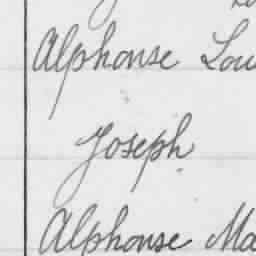 Alphonse Lou
Joseph
Alphonse Ma